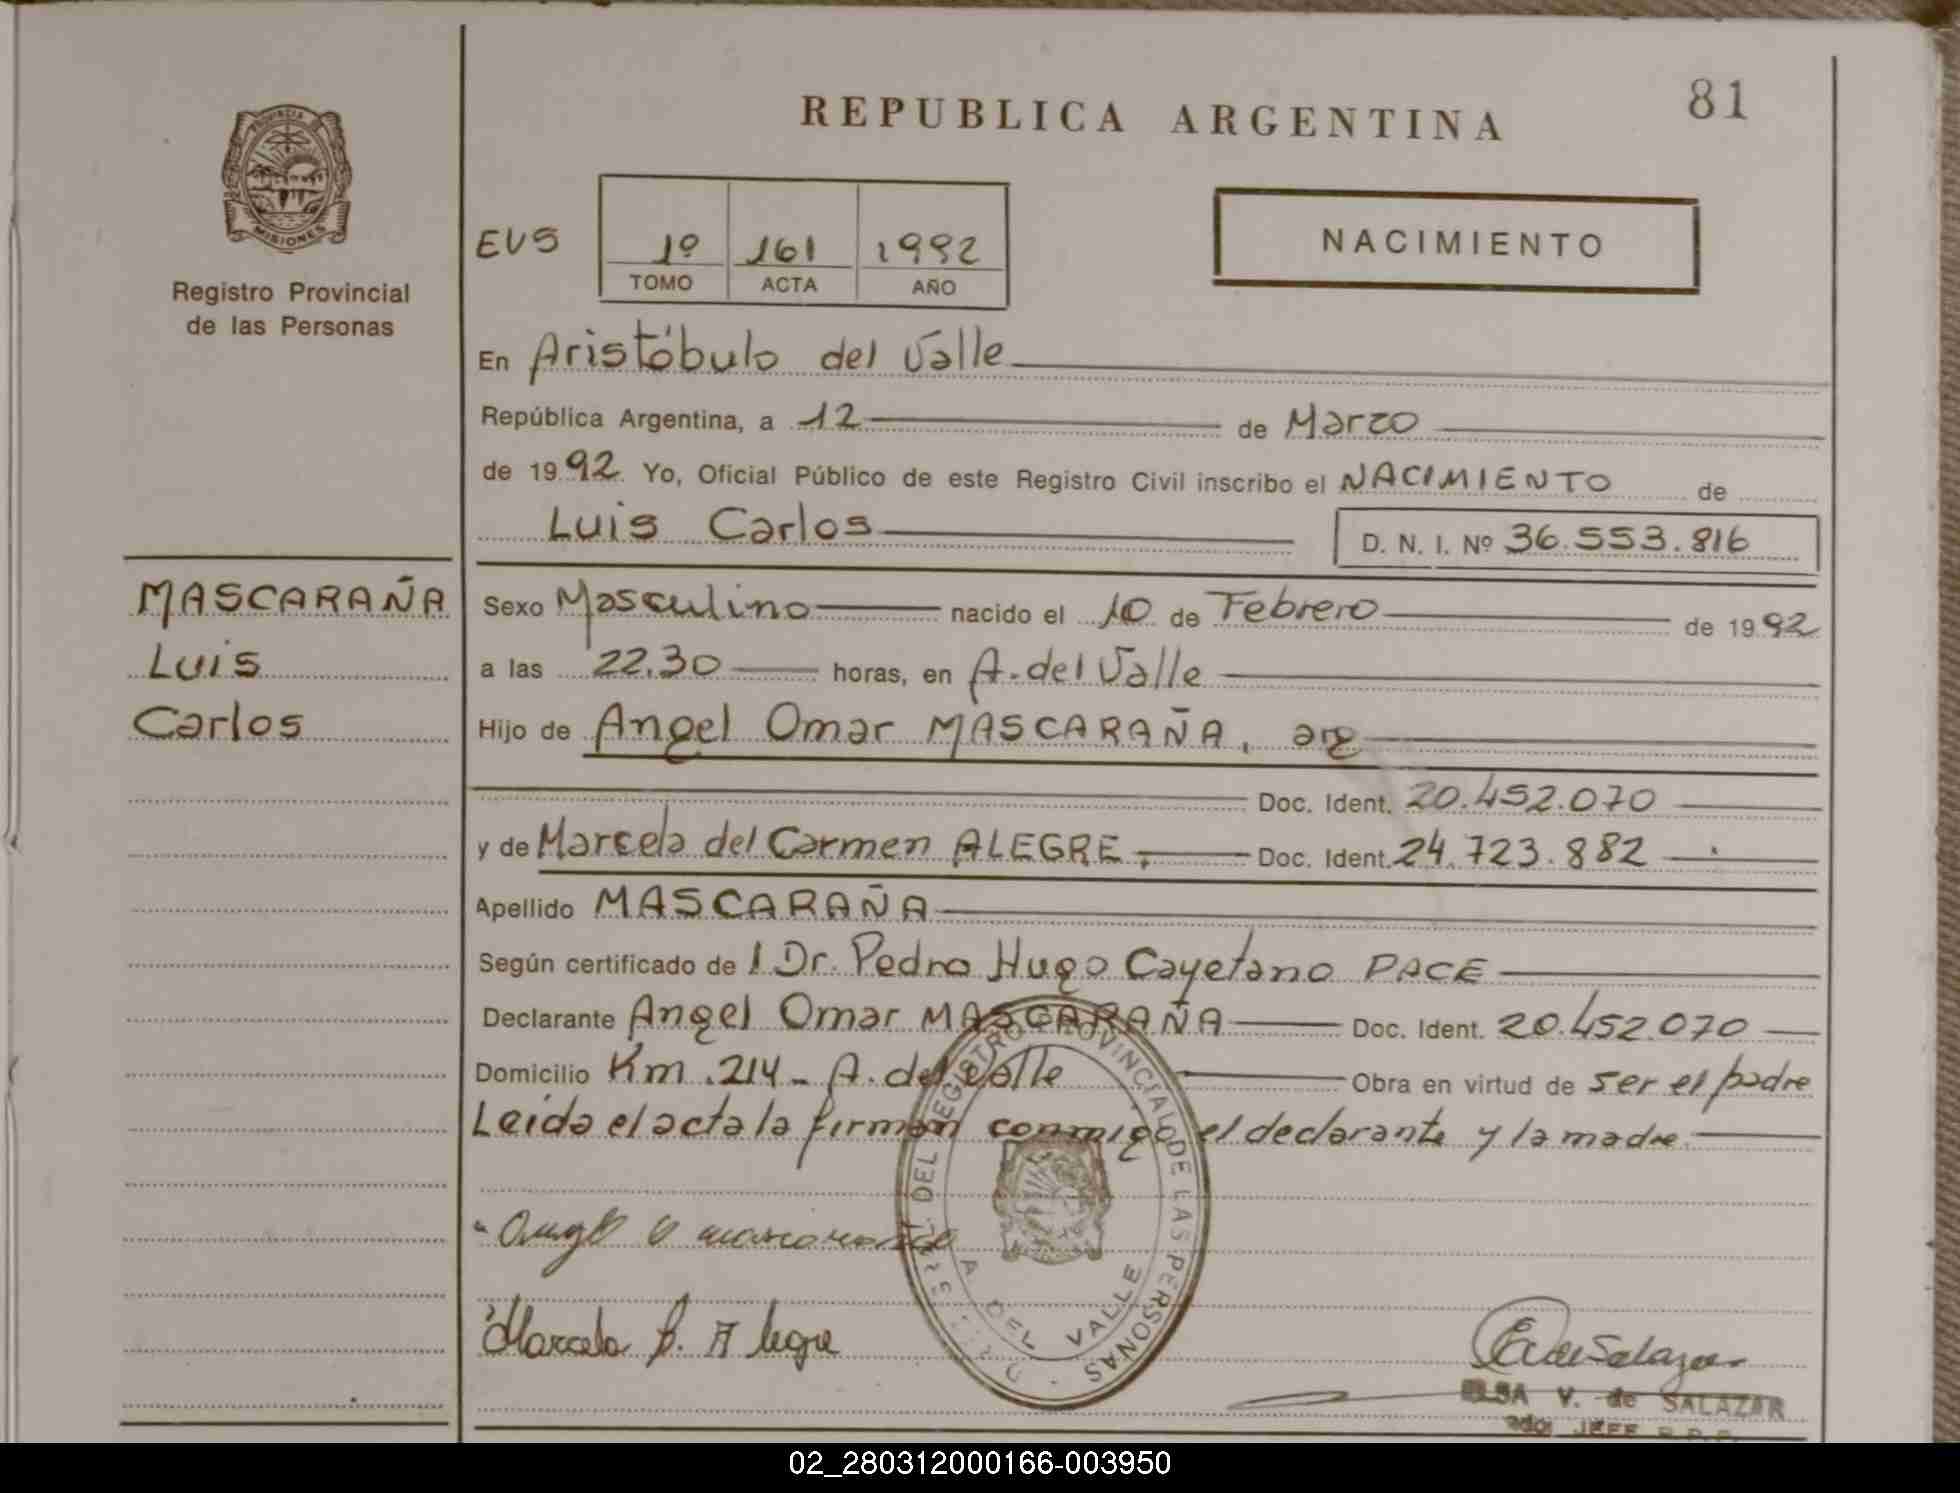 81
REPUBLICA ARGENTINA
PROVINCIA DE
MISIONES
Registro Provincial
de las Personas
EVS
1º 161 1992
TOMO ACTA AÑO
NACIMIENTO
En Aristóbulo del Valle
República Argentina, a 12 de Marzo
de 1992. Yo, Oficial Público de este Registro Civil inscribo el NACIMIENTO de
Luis Carlos D. N. I. Nº 36.553.816
MASCARAÑA
Luis
Carlos
Sexo Masculino nacido el 10 de Febrero de 1992
a las 22.30 horas, en A. del Valle
Hijo de Angel Omar MASCARAÑA, arg
Doc. Ident. 20.452.070
y de Marcela del Carmen ALEGRE, Doc. Ident. 24.723.882
Apellido MASCARAÑA
Según certificado de l Dr. Pedro Hugo Cayetano PACE
Declarante Angel Omar MASCARAÑA Doc. Ident. 20.452.070
Domicilio Km. 214 - A. del Valle Obra en virtud de ser el padre
Leida el acta la firman conmigo el declarante y la madre.
DEL REGISTRO PROVINCIAL DE LAS PERSONAS
A DEL VALLE
Marcela Alegre
E V de Salazar
ELSA V. de SALAZAR
JEFE
02_280312000166-003950